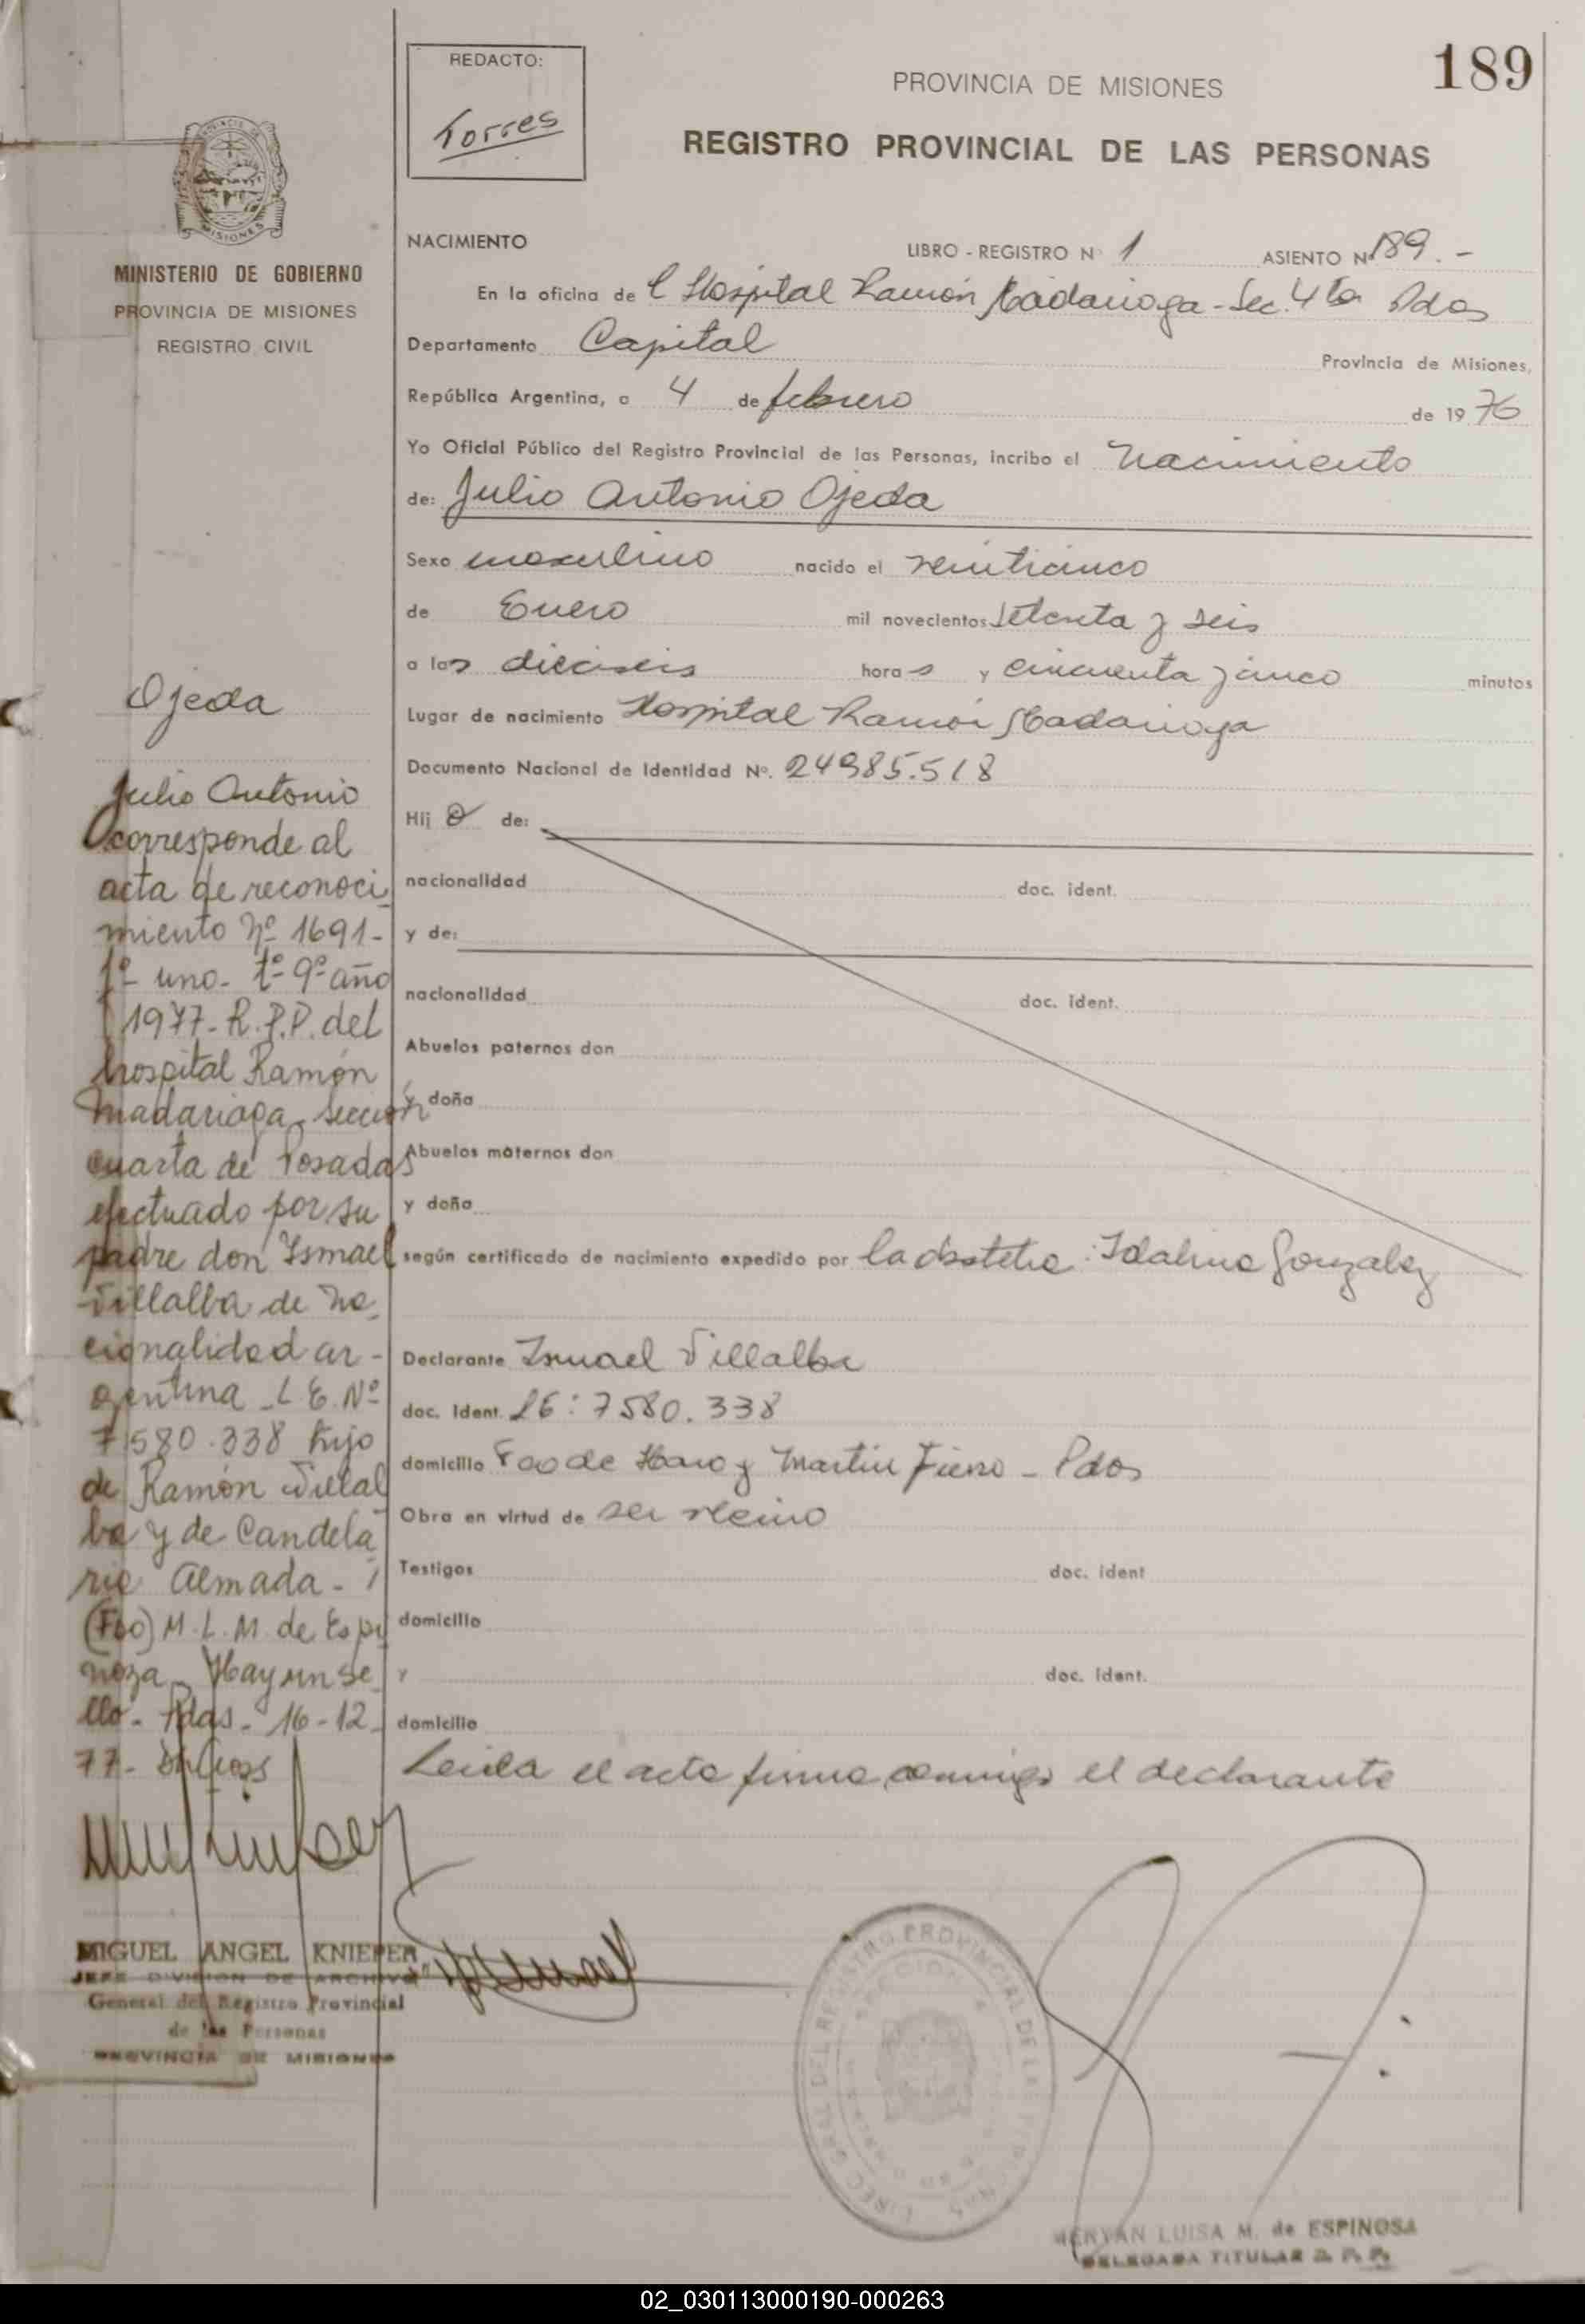 189
REDACTO:
Torres
PROVINCIA DE MISIONES
REGISTRO PROVINCIAL DE LAS PERSONAS
MINISTERIO DE GOBIERNO
PROVINCIA DE MISIONES
REGISTRO CIVIL
NACIMIENTO LIBRO - REGISTRO Nº 1 ASIENTO Nº 189.-
En la oficina de l Hospital Ramón Madariaga - Sec. 4ta Pdas
Departamento Capital Provincia de Misiones,
República Argentina, a 4 de febrero de 1976
Yo Oficial Público del Registro Provincial de las Personas, incribo el Nacimiento
de: Julio Antonio Ojeda
Sexo masculino nacido el veinticinco
de Enero mil novecientos setenta y seis
a las dieciseis horas y cincuenta y cinco minutos
Lugar de nacimiento Hospital Ramón Madariaga
Documento Nacional de Identidad Nº. 24985.518
Hij o de:
nacionalidad doc. ident.
y de:
nacionalidad doc. ident.
Abuelos paternos don
y doña
Abuelos maternos don
y doña
según certificado de nacimiento expedido por la obstetra: Idalina Gonzalez
Declarante Ismael Villalba
doc. ident. LE: 7580.338
domicilio Fco de Haro y Martin Fierro - Pdas
Obra en virtud de ser vecino
Testigos doc. ident
domicilio
y doc. ident.
domicilio
Leida el acta firma conmigo el declarante
Ojeda
Julio Antonio
corresponde al
acta de reconoci
miento Nº 1691-
1º uno- tº 9º año
1977- R.P.P. del
hospital Ramón
Madariaga, sección
cuarta de Posadas
efectuado por su
padre don Ismael
Villalba de na
cionalidad ar-
gentina - L E. Nº
7580.338 hijo
de Ramón Villal
ba y de Candela
ria Almada -
(Fdo) M. L. M. de Espi
noza - Hay un se
llo - Pdas - 16-12-
77-
MIGUEL ANGEL KNIEPER
JEFE DIVISION DE ARCHIVO
General del Registro Provincial
de las Personas
PROVINCIA DE MISIONES
Ismael
MERYAN LUISA M. de ESPINOSA
DELEGADA TITULAR R. P. P.
02_030113000190-000263